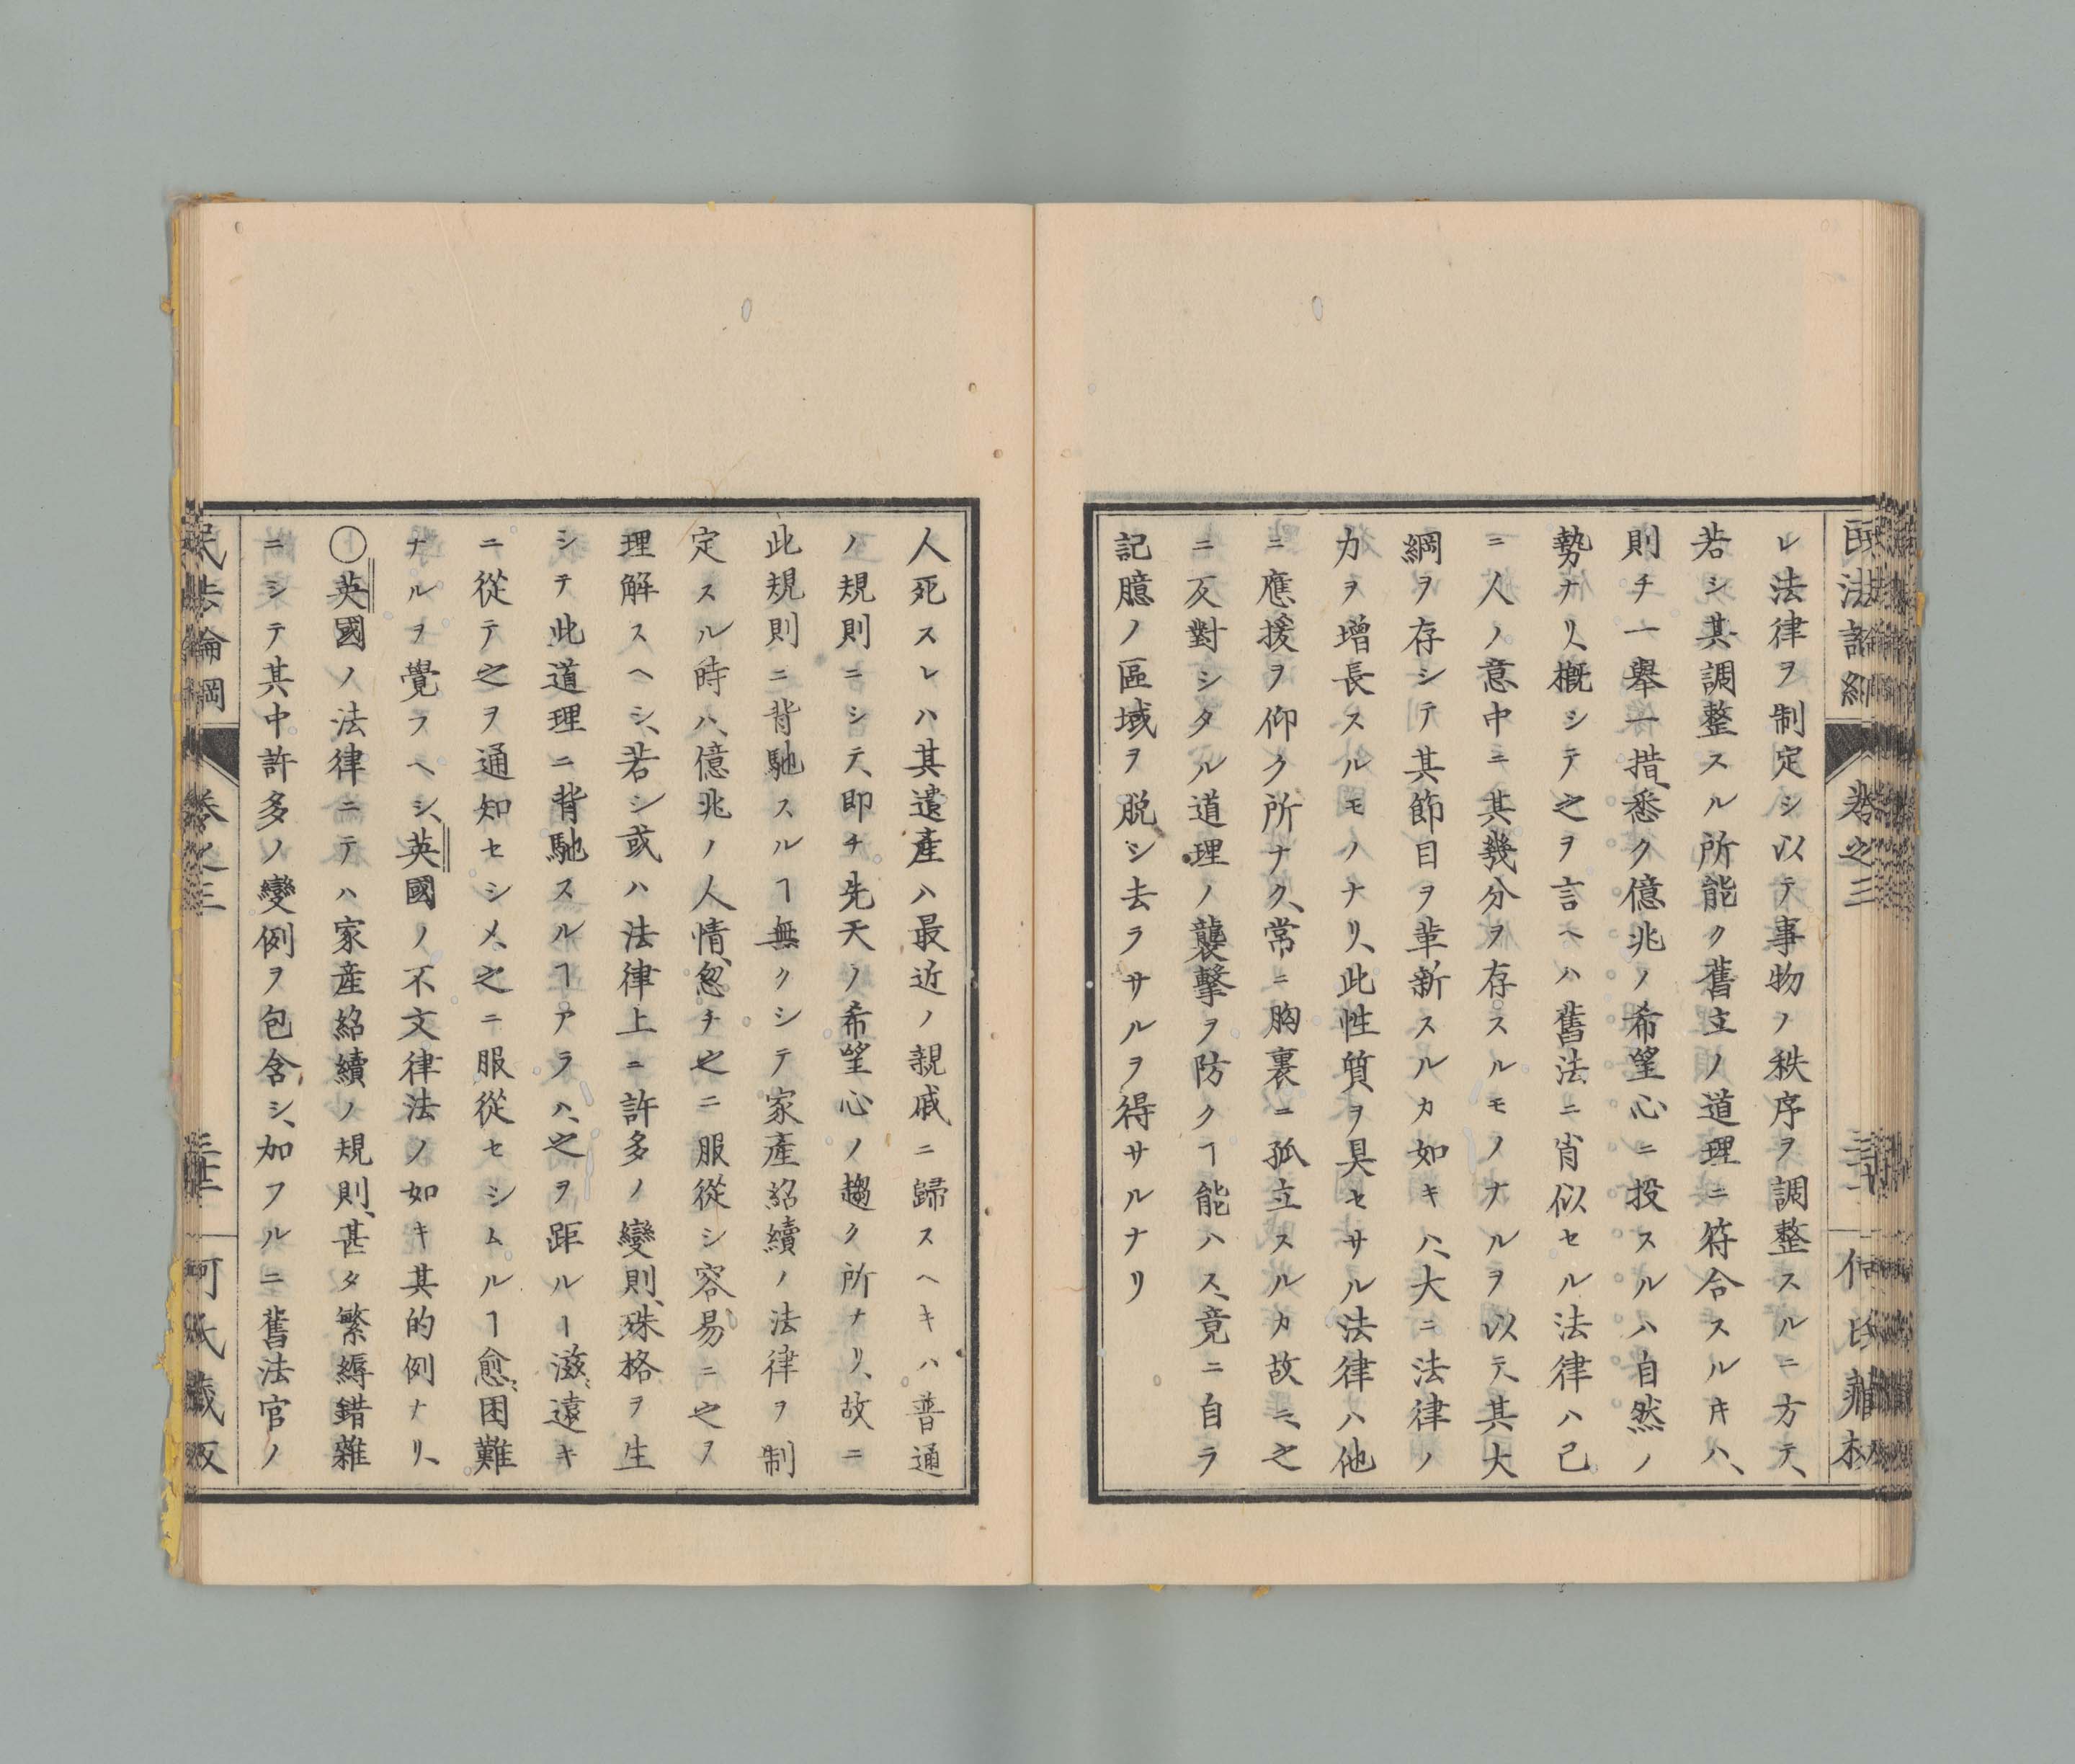 レ法律ヲ制定シ以テ事物ノ秩序ヲ調整スルニ方テ、
若シ其調整スル所能ク舊立ノ道理ニ符合スルキハ、
則チ一擧一措、悉ク億兆ノ希望心ニ投スルハ自然ノ
勢ナリ、概シテ之ヲ言ヘハ舊法ニ肖似セル法律ハ己
ニ人ノ意中ニ其幾分ヲ存スルモノナルヲ以テ、其大
綱ヲ存シテ其節目ヲ革新スルカ如キハ、大ニ法律ノ
力ヲ增長スルモノナリ、此性質ヲ具セサル法律ハ他
ニ應援ヲ仰ク所ナク、常ニ胸裏ニ孤立スルカ故ニ、之
ニ反對シタル道理ノ襲擊ヲ防クヿ能ハス、竟ニ自ラ
記臆ノ區域ヲ脱シ去ラサルヲ得サルナリ
人死スレハ其遺產ハ最近ノ親戚ニ歸スヘキハ普通
ノ規則ニシテ、即チ先天ノ希望心ノ趨ク所ナリ、故ニ
此規則ニ背馳スルヿ無クシテ家產紹續ノ法律ヲ制
定スル時ハ、億兆ノ人情、忽チ之ニ服從シ容易ニ之ヲ
理解スヘシ、若シ或ハ法律上ニ許多ノ變則、殊格ヲ生
シテ此道理ニ背馳スルヿアラハ、之ヲ距ルヿ滋〻遠キ
ニ從テ之ヲ通知セシメ、之ニ服從セシムルヿ愈〻困難
ナルヲ覺フヘシ、英國ノ不文律法ノ如キ其的例ナリ、
〇英國ノ法律ニテハ家產紹續ノ規則、甚タ繁縟錯雜
ニシテ其中許多ノ變例ヲ包含シ、加フルニ舊法官ノ
民法論綱 卷之三 河氏藏版